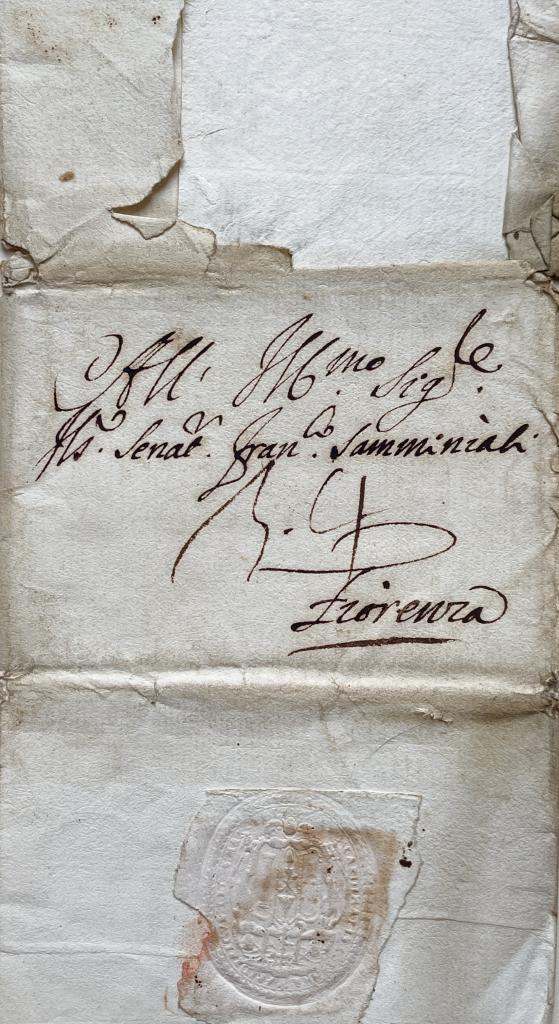 All. Ill.mo Sig.re
Sen.at.r Fran.co Samminiati
Fiorenza